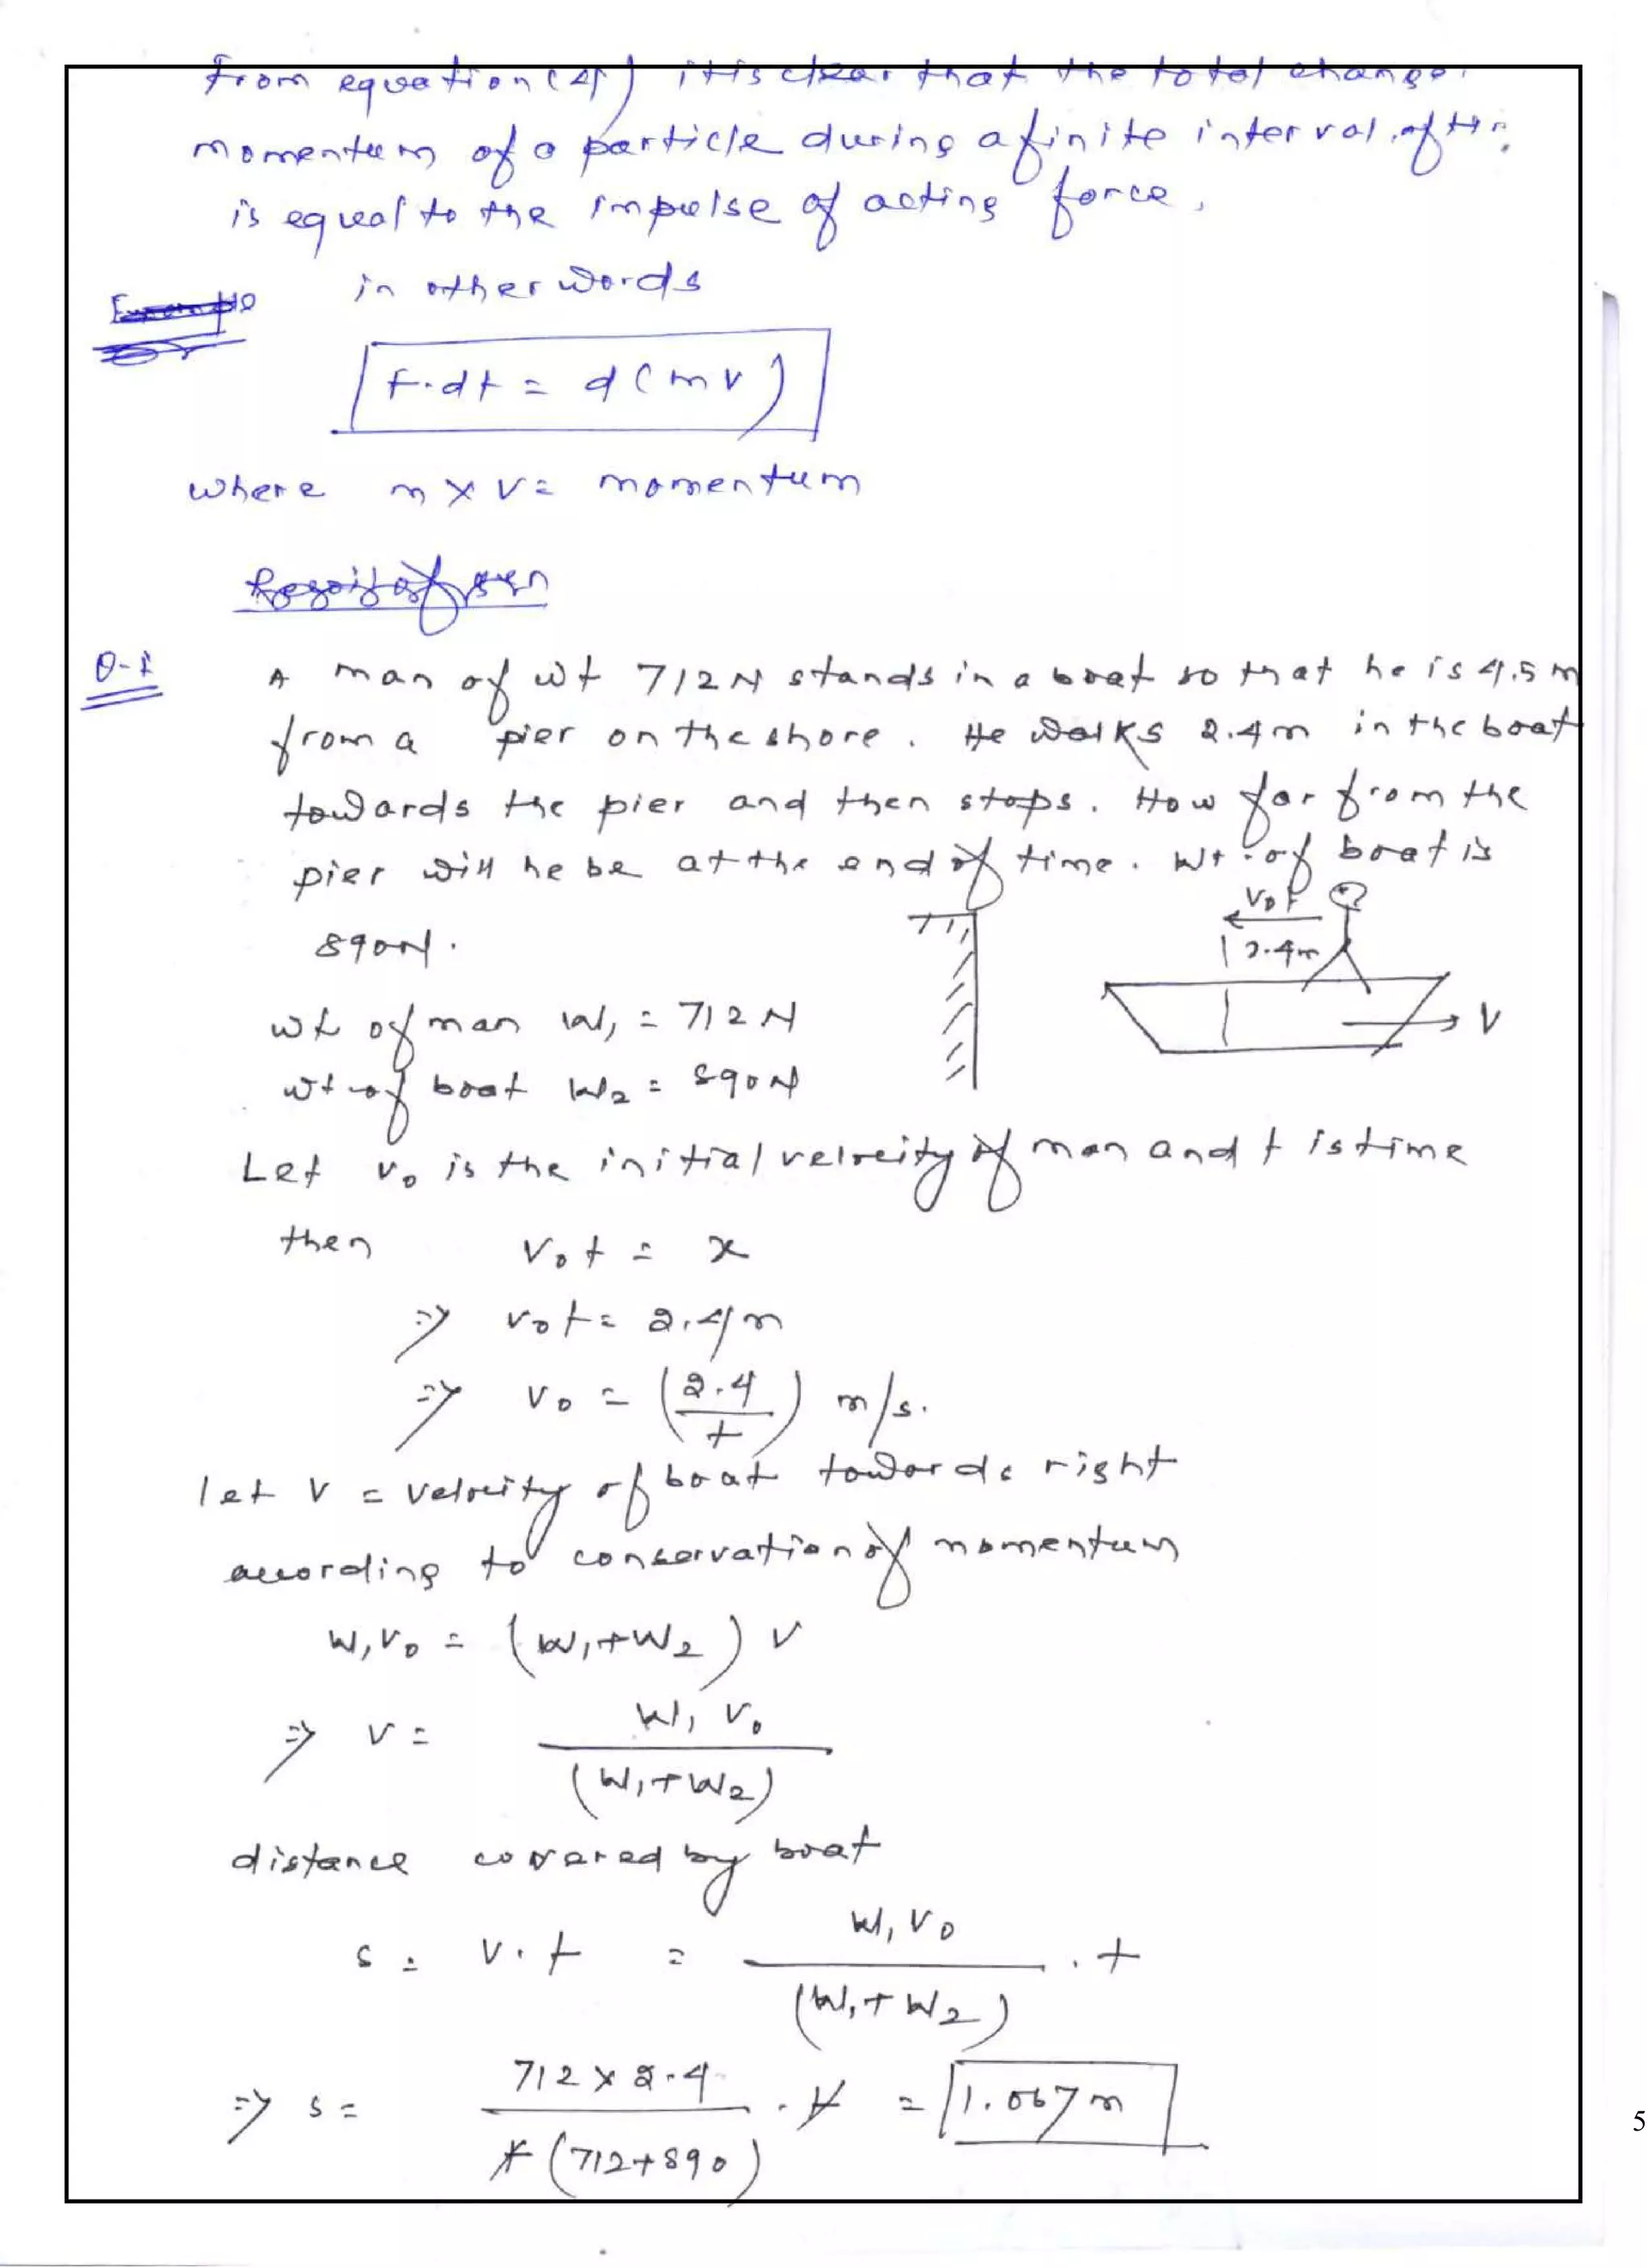 From equation (4) it is clear that the total change
momentum of a particle during a finite interval of
is equal to the impulse of acting force,
in other words
F.dt = d(mv)
where m x v = momentum
Q-1 A man of wt 712N stands in a boat so that he is 4.5m
from a pier on the shore. He walks 2.4m in the boat
towards the pier and then stops. How far from the
pier will he be at the end of time. Wt. of boat is
890N.
V₀t
2.4m
V
wt of man W₁ = 712N
wt of boat W₂ = 890N
Let v₀ is the initial velocity of man and t is time
then v₀t = x
⇒ v₀t = 2.4m
⇒ v₀ = (2.4/t) m/s.
let v = velocity of boat towards right
according to conservation of momentum
W₁v₀ = (W₁+W₂) v
⇒ v = W₁v₀/(W₁+W₂)
distance covered by boat
s = v.t = W₁v₀/(W₁+W₂) . t
⇒ s = 712 x 2.4/t(712+890) . t = 1.067m
5